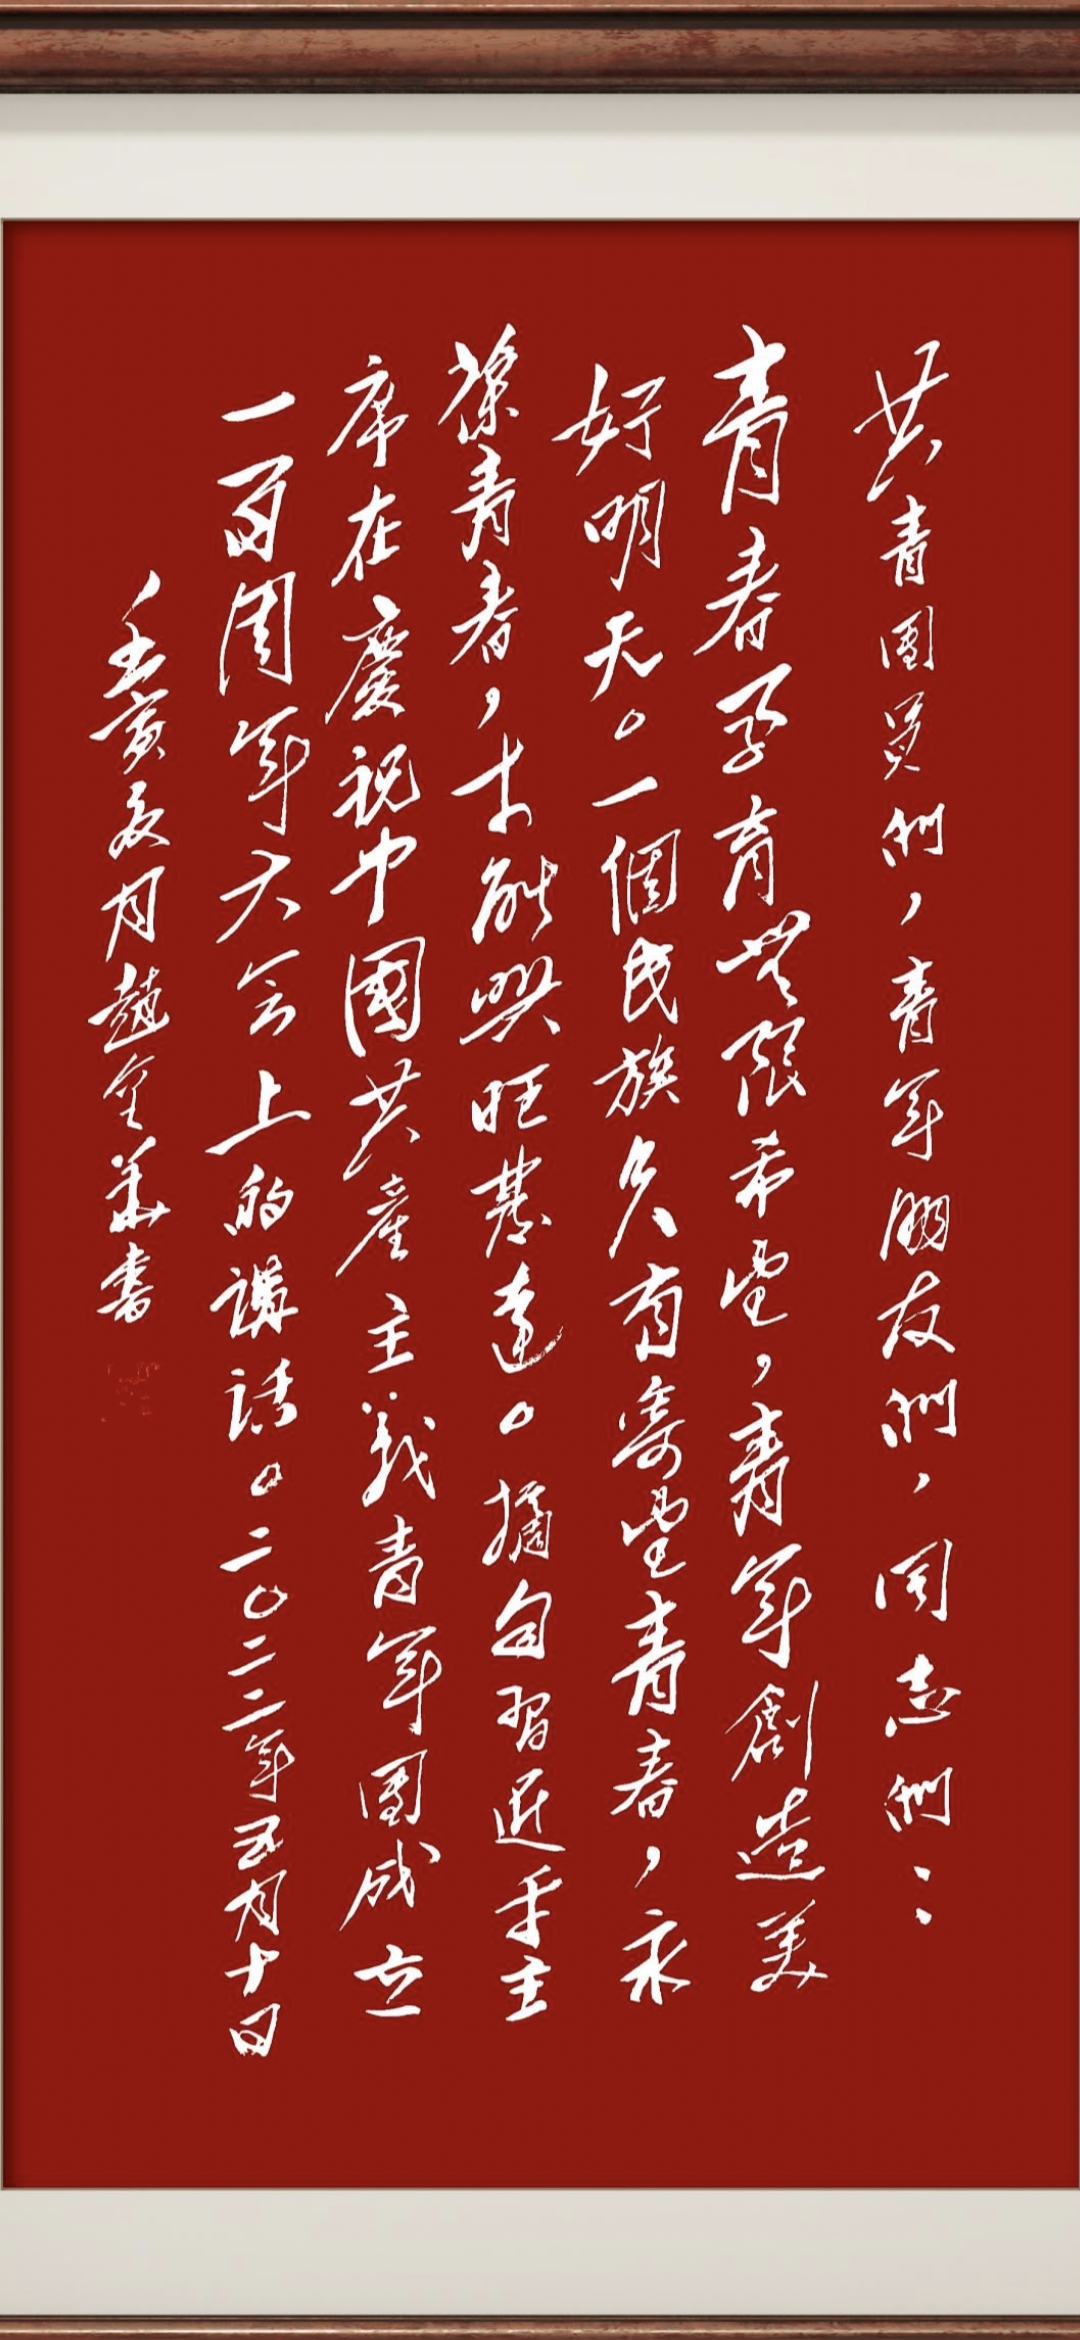 共青團員們，青年朋友們，同志們：
青春孕育无限希望，青年創造美
好明天。一個民族只有寄望青春，永
葆青春，才能興旺發達。摘自習近平主
席在慶祝中國共產主義青年團成立
一百周年大会上的講話。二〇二二年五月十日
壬寅夏月趙金華書